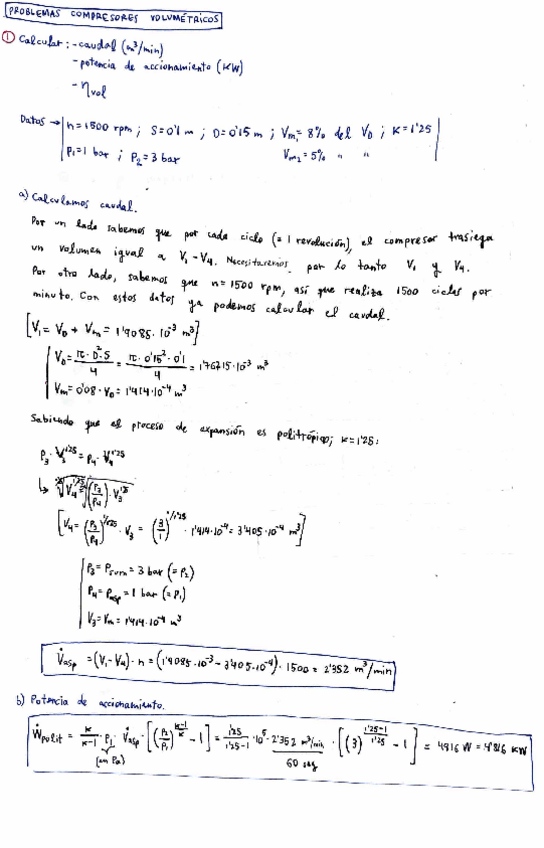 PROBLEMAS COMPRESORES VOLUMÉTRICOS
① Calcular: - caudal (m³/min)
- potencia de accionamiento (KW)
- ηvol
Datos → n=1500 rpm; S=0'1 m; D=0'15 m; Vm₁= 8% del VD; K=1'25
P₁=1 bar; P₂=3 bar Vm₂=5% " "
a) Calculamos caudal.
Por un lado sabemos que por cada ciclo (= 1 revolución), el compresor trasiega
un volumen igual a V₁-V₄. Necesitaremos, por lo tanto V₁ y V₄.
Por otro lado, sabemos que n=1500 rpm, así que realiza 1500 ciclos por
minuto. Con estos datos ya podemos calcular el caudal.
[V₁ = VD + Vm = 1'9085·10⁻³ m³]
VD = π·D²·S/4 = π·0'15²·0'1/4 = 1'76715·10⁻³ m³
Vm = 0'08·VD = 1'414·10⁻⁴ m³
Sabiendo que el proceso de expansión es politrópico; K=1'25:
P₃·V₃^1'25 = P₄·V₄^1'25
↳ ^1'25√V₄^1'25 = ^1'25√(P₃/P₄)·V₃^1'25
[V₄ = (P₃/P₄)^1/1'25 · V₃ = (3/1)^1/1'25 · 1'414·10⁻⁴ = 3'405·10⁻⁴ m³]
P₃ = Psum = 3 bar (= P₂)
P₄ = Pasp = 1 bar (= P₁)
V₃ = Vm = 1'414·10⁻⁴ m³
V̇asp = (V₁-V₄)·n = (1'9085·10⁻³ - 3'405·10⁻⁴)·1500 = 2'352 m³/min
b) Potencia de accionamiento.
Ẇpolit = K/K-1 · P₁ · V̇asp · [(P₂/P₁)^K-1/K - 1] = 1'25/1'25-1 · 10⁵ · 2'352 m³/min · [(3)^1'25-1/1'25 - 1] = 4816 W = 4'816 KW
(en Pa) 60 seg